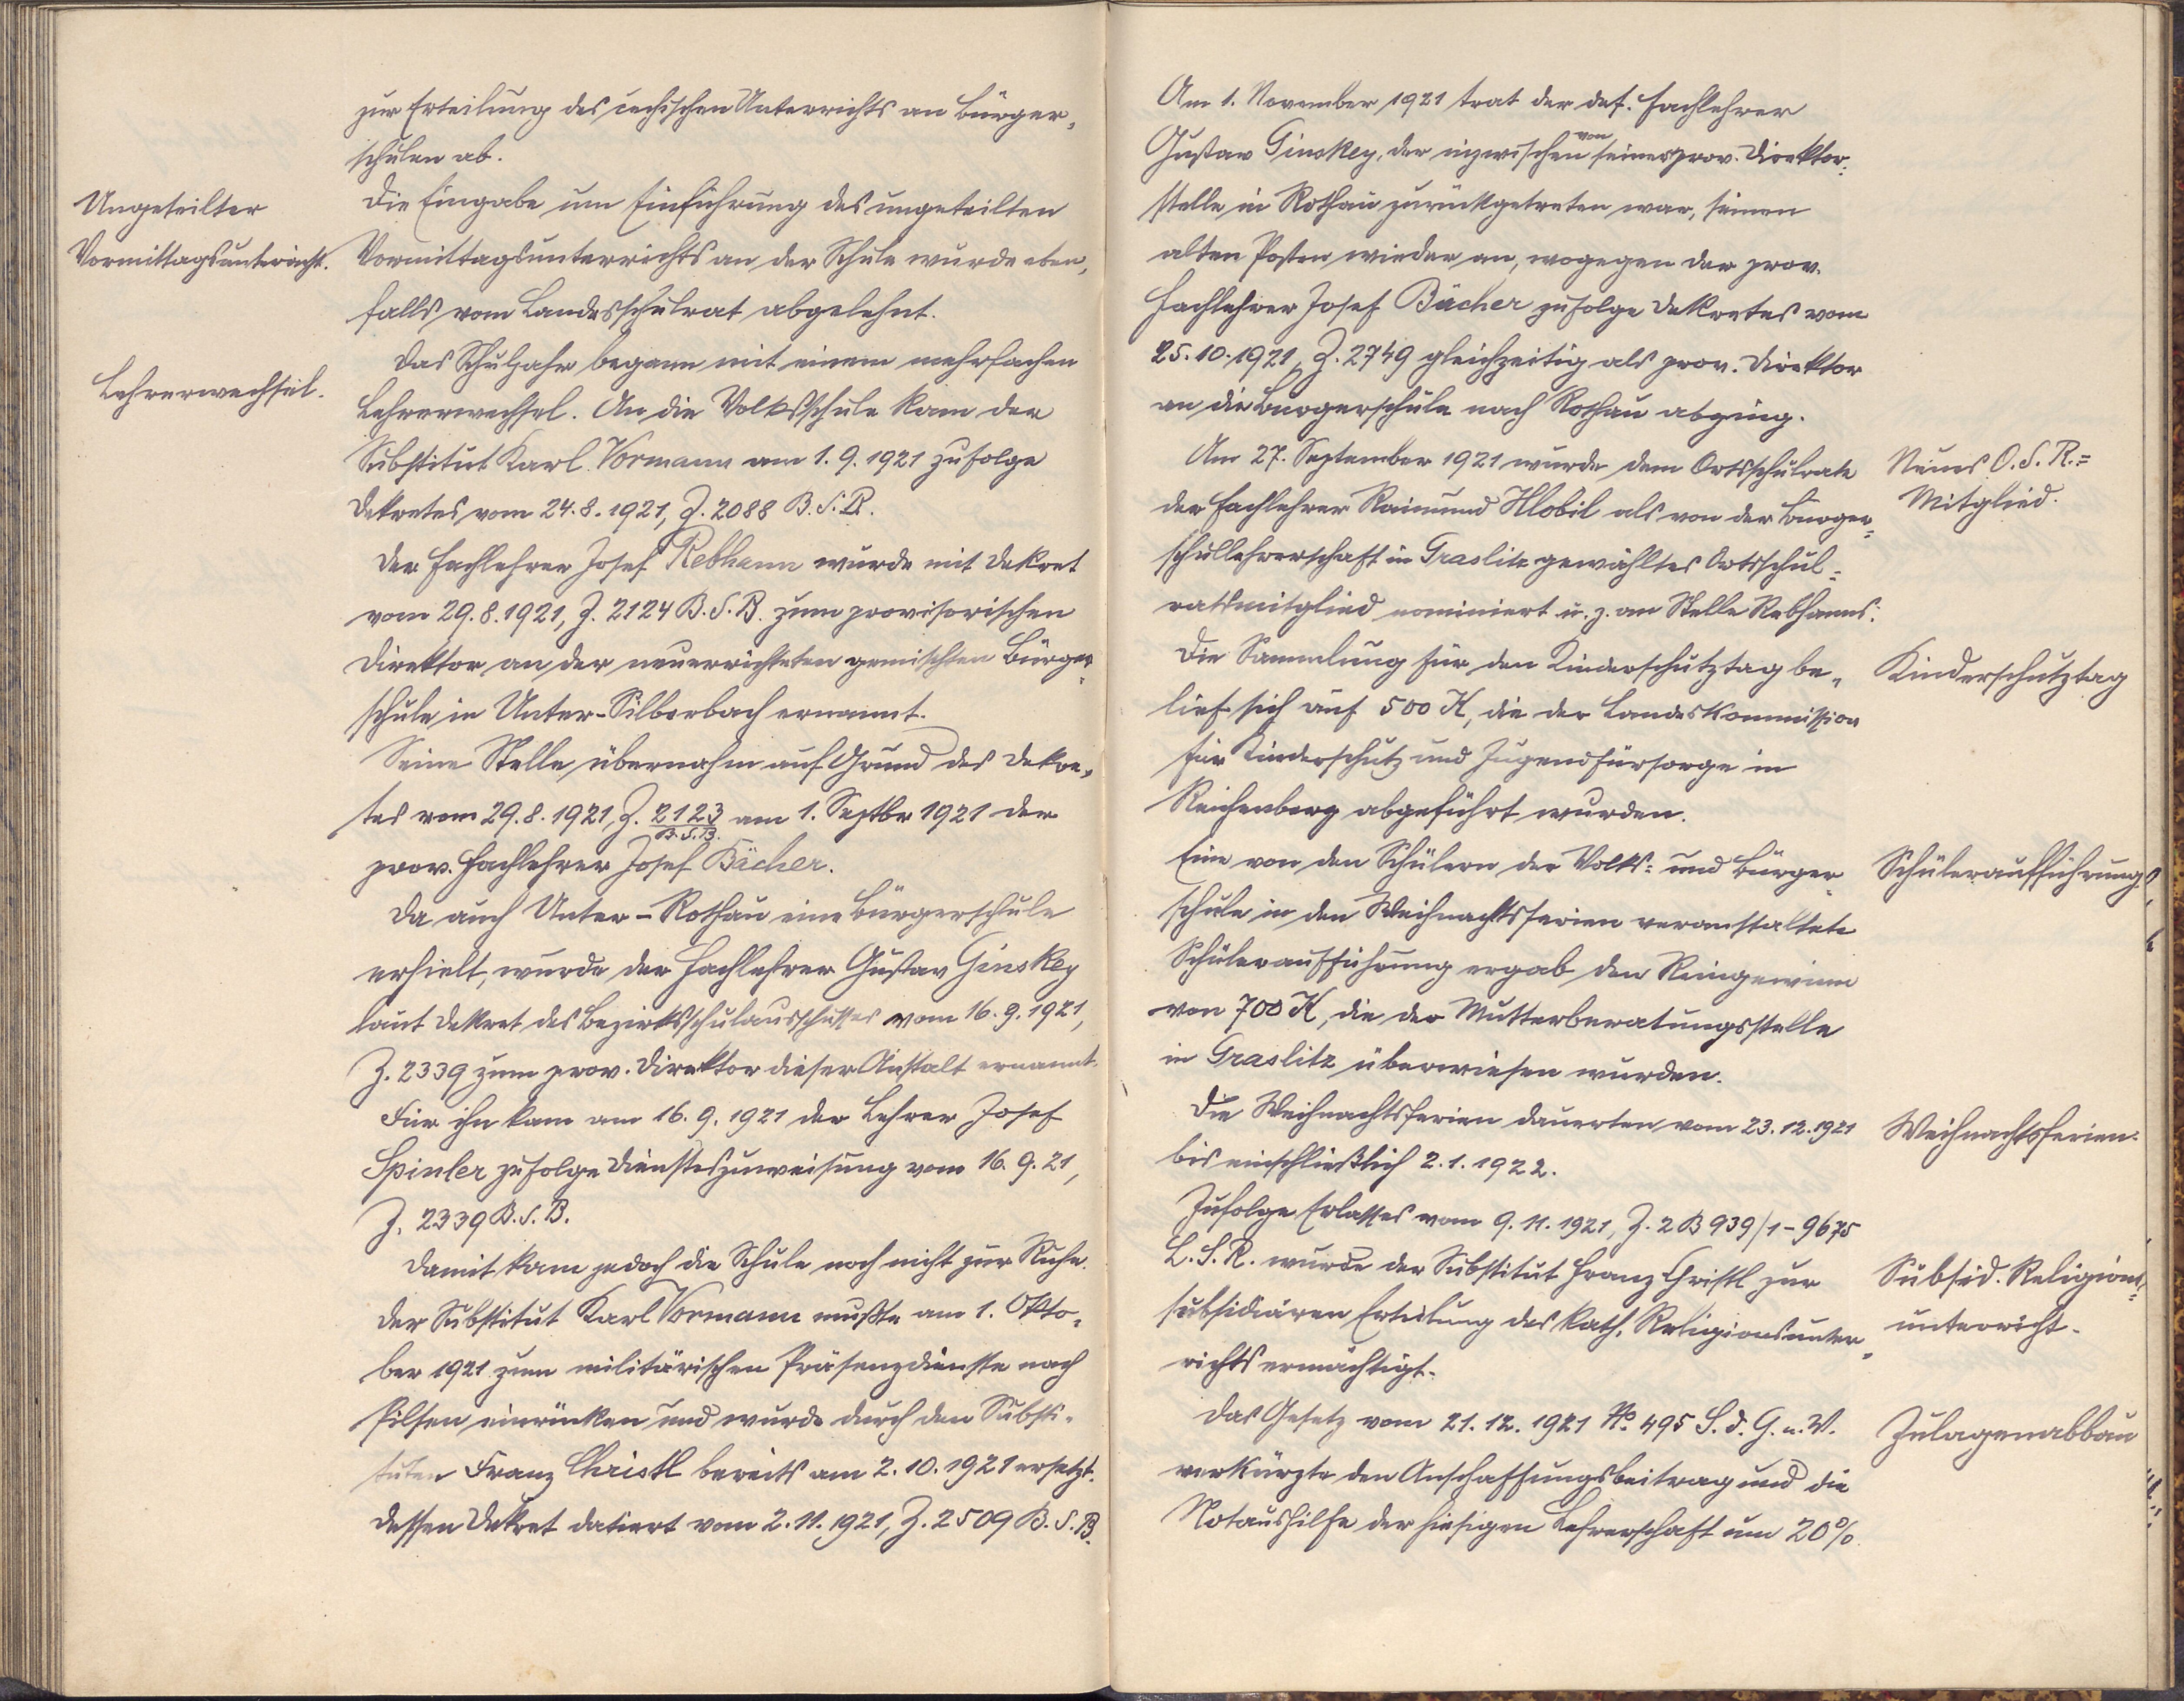 zur Erteilung des čechischen Unterrichts an Bürger-
schulen ab.
Ungeteilter
Vormittagsunterricht.
Die Eingabe um Einführung des ungeteilten
Vormittagsunterrichts an der Schule wurde eben-
falls vom Landesschulrat abgelehnt.
Lehrerwechsel.
Das Schuljahr begann mit einem mehrfachen
Lehrerwechsel. An die Volksschule kam der
Substitut Karl Vormann am 1.9.1921 zufolge
Dekretes vom 24.8.1921, Z. 2088 B.S.R.
Der Fachlehrer Josef Rebhann wurde mit Dekret
vom 29.8.1921, Z. 2124 B.S.B. zum provisorischen
Direktor an der neuerrichteten gemischten Bürger-
schule in Unter-Silberbach ernannt.
Seine Stelle übernahm auf Grund des Dekre-
tes vom 29.8.1921, Z. 2123 am 1. Septbr 1921 der
B.S.B.
prov. Fachlehrer Josef Bächer.
Da auch Unter-Rothau eine Bürgerschule
erhielt, wurde der Fachlehrer Gustav Ginskey
laut Dekret des Bezirksschulausschusses vom 16.9.1921,
Z. 2339 zum prov. Direktor dieser Anstalt ernannt.
Für ihn kam am 16.9.1921 der Lehrer Josef
Spinler zufolge Dienstzuweisung vom 16.9.21,
Z. 2339 B.S.B.
Damit kam jedoch die Schule noch nicht zur Ruhe.
Der Substitut Karl Vormann mußte am 1. Okto-
ber 1921 zum militärischen Präsenzdienste nach
Pilsen einrücken und wurde durch den Substi-
tuten Franz Christl bereits am 2.10.1921 ersetzt.
Dessen Dekret datiert vom 2.11.1921, Z. 2509 B.S.B.
Am 1. November 1921 trat der def. Fachlehrer
Gustav Ginskey, der inzwischen von seiner prov. Direktor-
stelle in Rothau zurückgetreten war, seinen
alten Posten wieder an, wogegen der prov.
Fachlehrer Josef Bächer zufolge Dekretes vom
25.10.1921, Z. 2749 gleichzeitig als prov. Direktor
an die Bürgerschule nach Rothau abging.
Neues O.S.R.=
Mitglied.
Am 27. September 1921 wurde dem Ortsschulrate
der Fachlehrer Raimund Hlobil als von der Bürger-
schullehrerschaft in Graslitz gewähltes Ortsschul-
ratsmitglied nominiert u. z. an Stelle Rebhanns.
Kinderschutztag
Die Sammlung für den Kinderschutztag be-
lief sich auf 500 K, die der Landeskommission
für Kinderschutz und Jugendfürsorge in
Reichenberg abgeführt wurden.
Schüleraufführung.
Eine von den Schülern der Volks- und Bürger-
schule in den Weihnachtsferien veranstaltete
Schüleraufführung ergab den Reingewinn
von 700 K, die der Mutterberatungsstelle
in Graslitz überwiesen wurden.
Weihnachtsferien.
Die Weihnachtsferien dauerten vom 23.12.1921
bis einschließlich 2.1.1922.
Zufolge Erlasses vom 9.11.1921, Z. 2 B 939/1-9675
Subsid. Religions-
unterricht.
L.S.R. wurde der Substitut Franz Christl zur
subsidiären Erteilung des kath. Religionsunter-
richts ermächtigt.
Zulagenabbau
Das Gesetz vom 21.12.1921 No. 495 S.d.G.u.V.
verkürzte den Anschaffungsbeitrag und die
Notaushilfe der hiesigen Lehrerschaft um 20%.